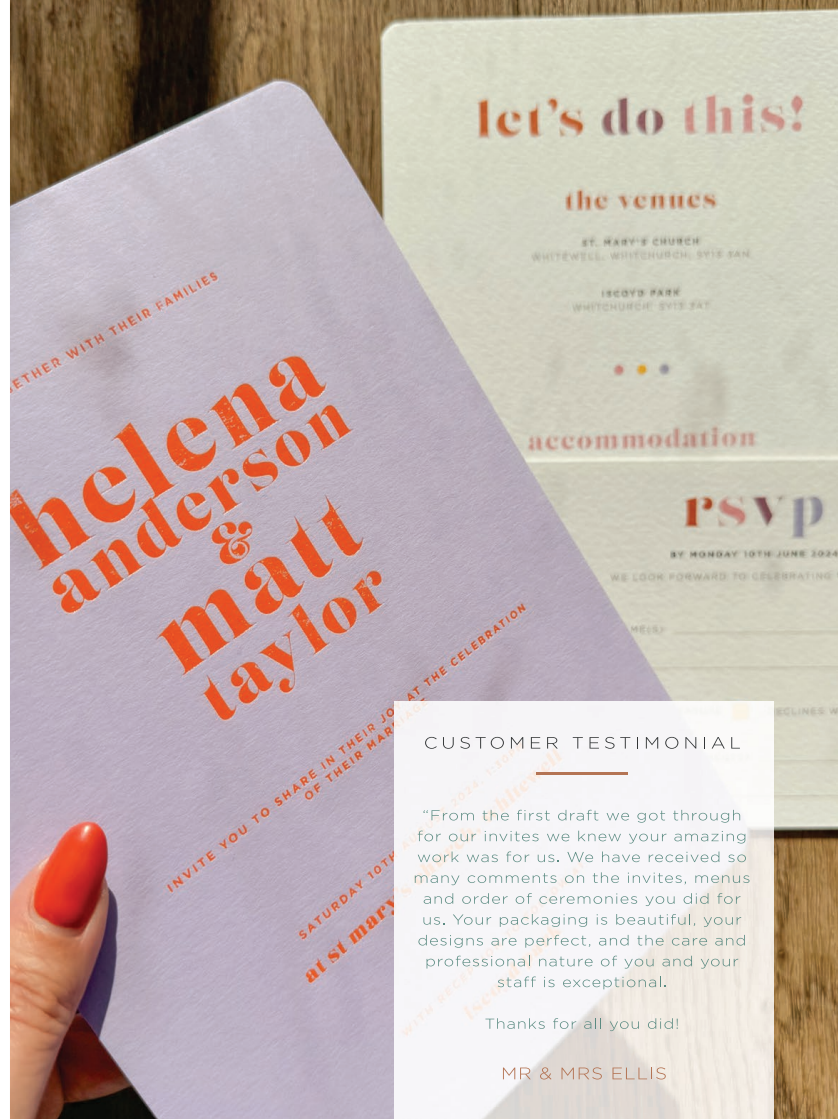 TOGETHER WITH THEIR FAMILIES
helena
anderson
&
matt
taylor
INVITE YOU TO SHARE IN THEIR JOY AT THE CELEBRATION
OF THEIR MARRIAGE
SATURDAY 10TH
at st mary's
let's do this!
the venues
ST. MARY'S CHURCH
WHITEWELL, WHITCHURCH, SY13 3AN
ISCOYD PARK
WHITCHURCH, SY13 3AT
accommodation
rsvp
BY MONDAY 10TH JUNE 2024
WE LOOK FORWARD TO CELEBRATING
CUSTOMER TESTIMONIAL
“From the first draft we got through
for our invites we knew your amazing
work was for us. We have received so
many comments on the invites, menus
and order of ceremonies you did for
us. Your packaging is beautiful, your
designs are perfect, and the care and
professional nature of you and your
staff is exceptional.
Thanks for all you did!
MR & MRS ELLIS